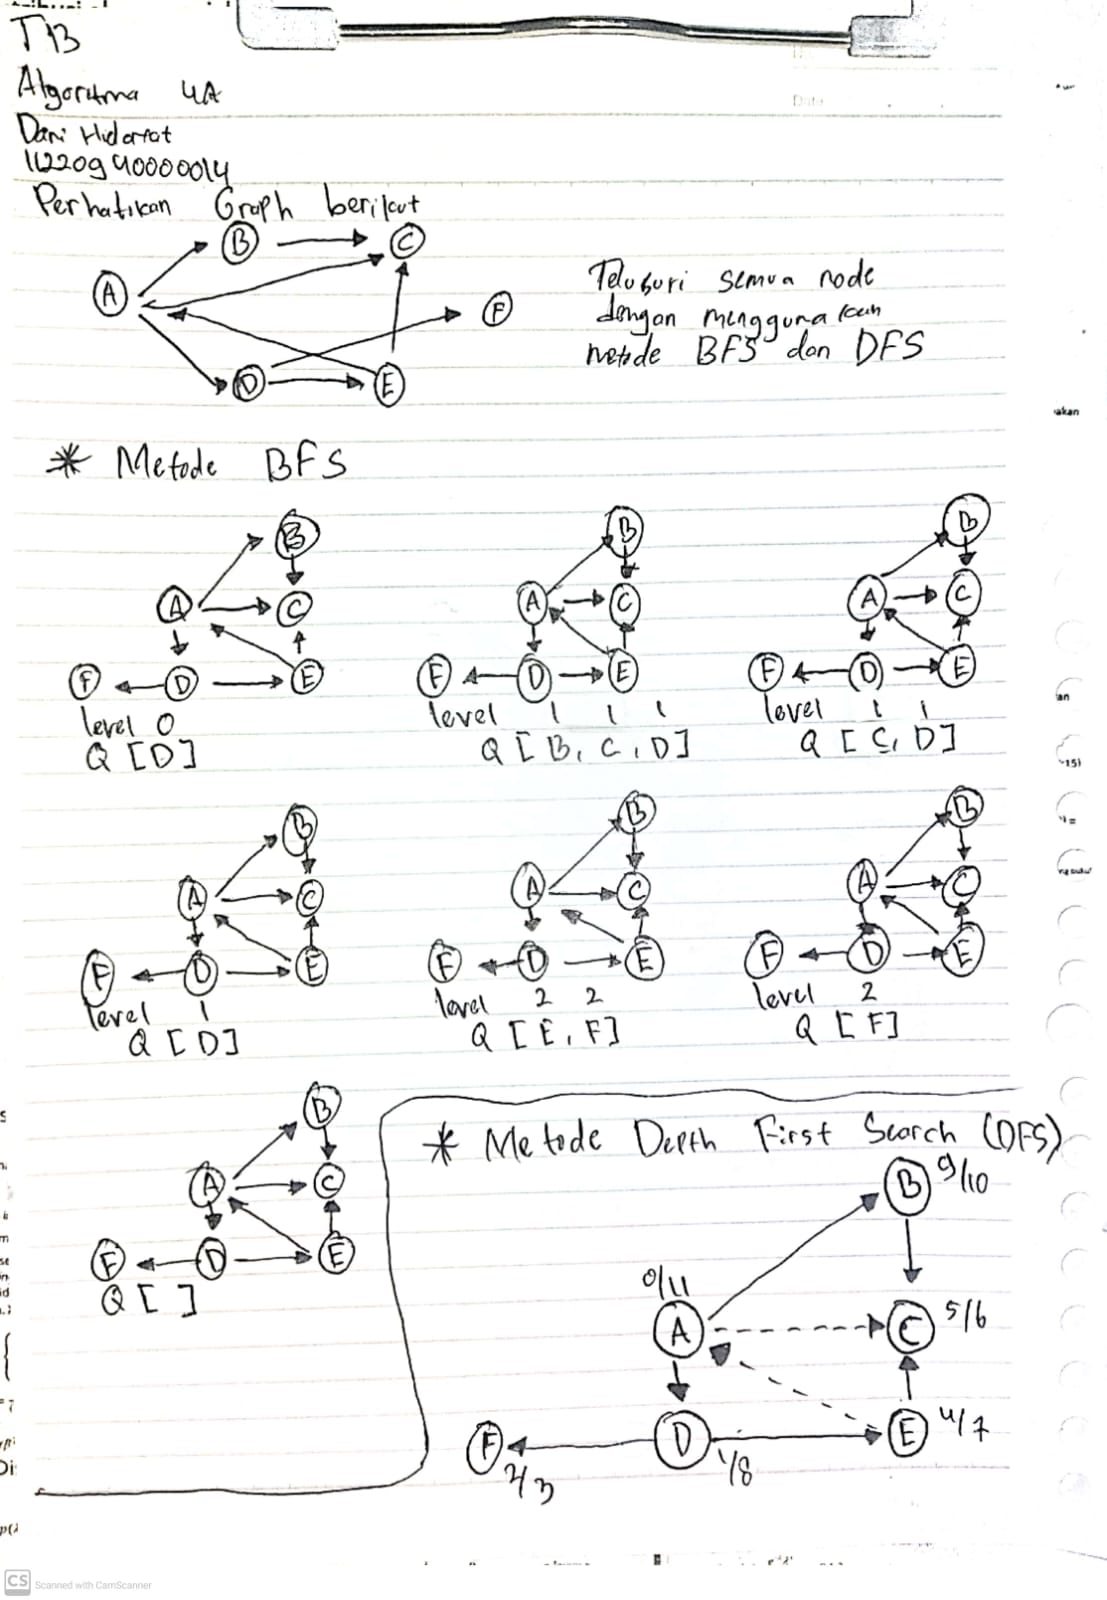 TB
Algoritma 4A
Dani Hidayat
11220940000014
Perhatikan Graph berikut
A B C D E F
Telusuri semua node
dengan menggunakan
metode BFS dan DFS
* Metode BFS
A B C D E F
level 0
Q [D]
A B C D E F
level 1 1 1
Q [B, C, D]
A B C D E F
level 1 1
Q [C, D]
A B C D E F
level 1
Q [D]
A B C D E F
level 2 2
Q [E, F]
A B C D E F
level 2
Q [F]
A B C D E F
Q [ ]
* Metode Depth First Search (DFS)
B 9/10
0/11
A C 5/6
F D E 4/7
2/3 1/8
akan
an
CS Scanned with CamScanner